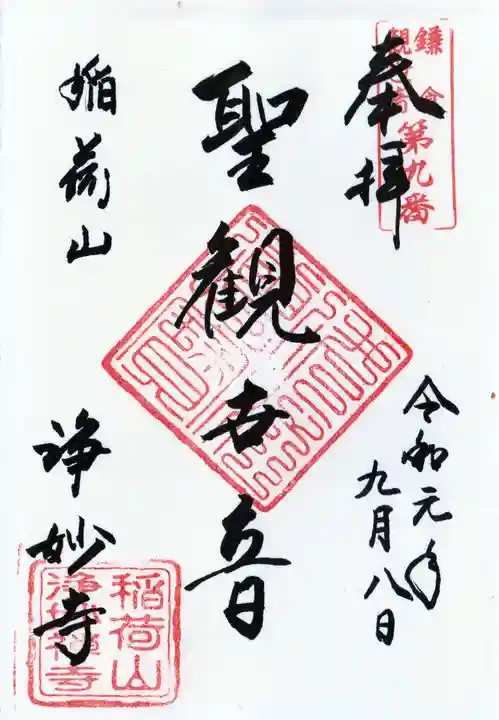 鎌倉
観音
第九番
奉拝
令和元年
九月八日
聖観世音
稲荷山
浄妙寺
稲荷山
浄妙禅寺